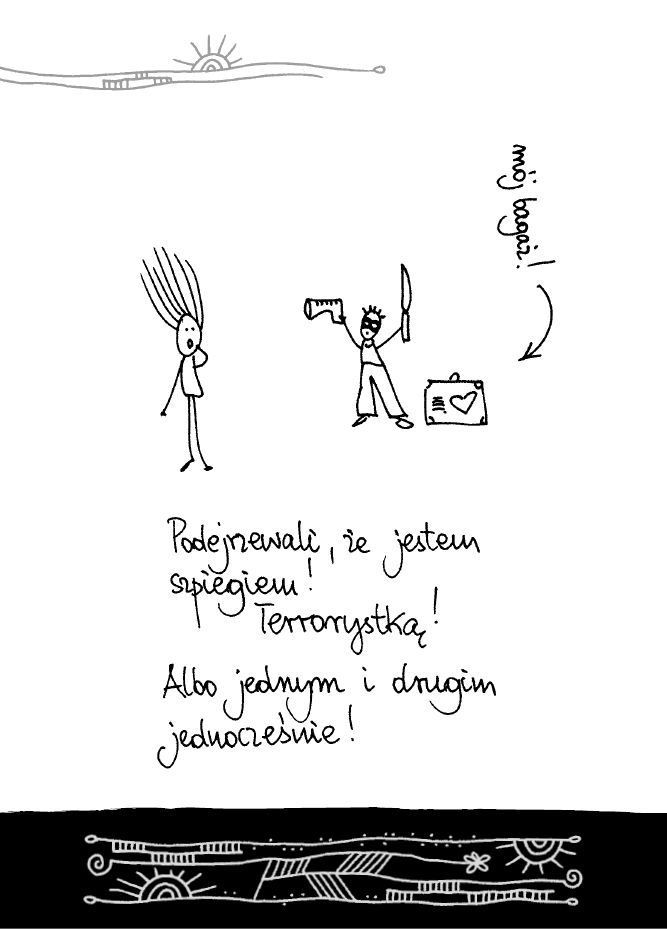 mój bagaż!
Podejrzewali, że jestem
szpiegiem!
Terrorystką!
Albo jednym i drugim
jednocześnie!